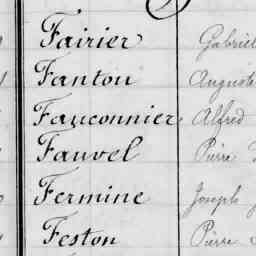 Fairier Gabriel
Fanton Auguste
Fauconnier Alfred
Fauvel Pierre
Fermine Joseph
Feston Pierre